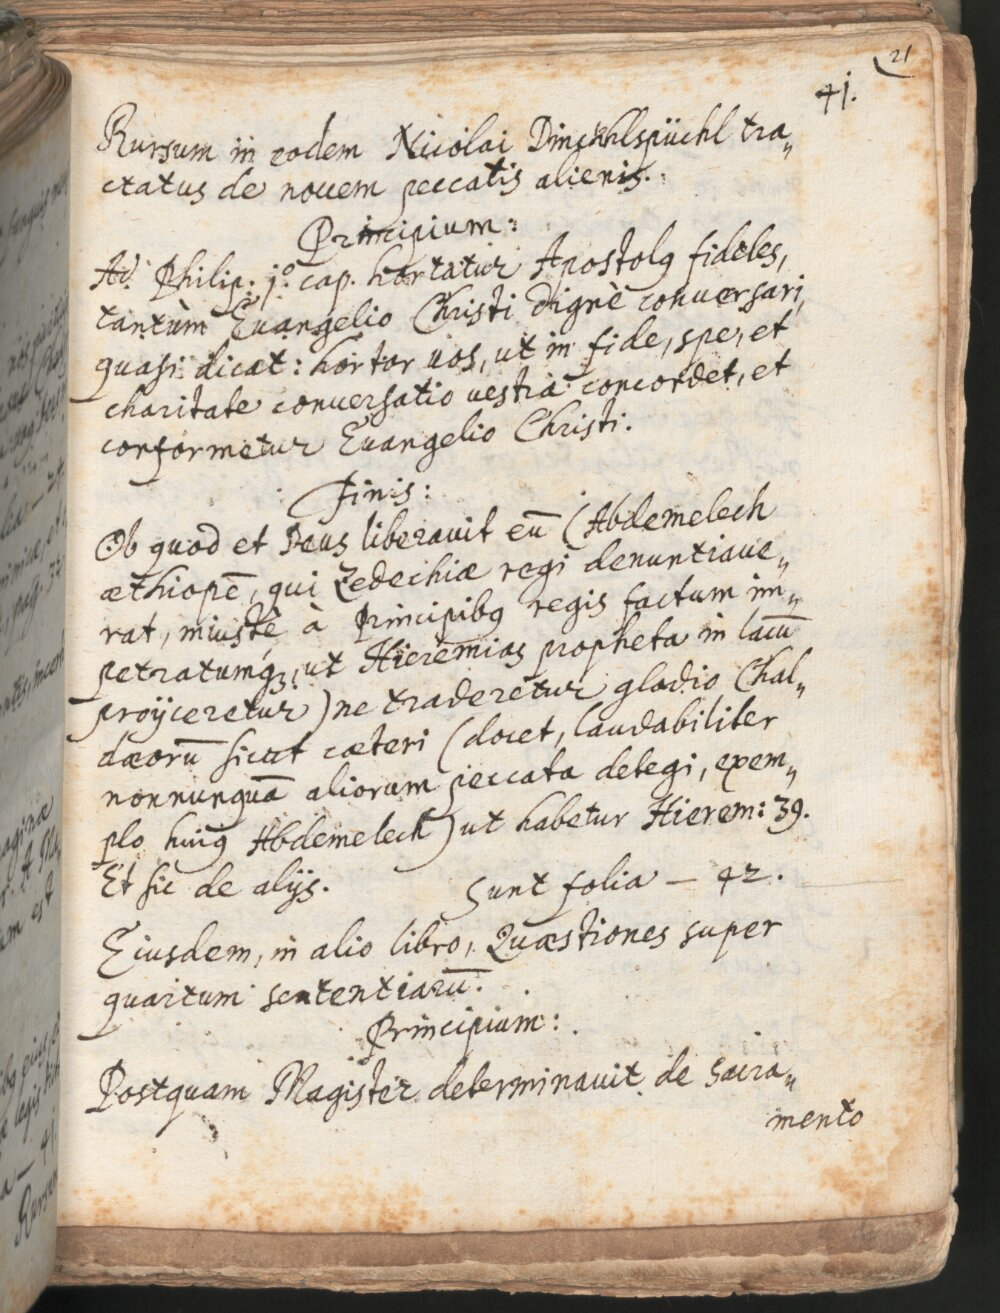 21
41.
Rursum in eodem Nicolai Dinckhlspüchl tra„
ctatus de nouem peccatis alienis.
Principium:
Ad Philip: j.° cap. hortatur Apostolꝯ fideles,
tantùm Euangelio Christi dignè conuersari,
quasi dicat: hortor uos, ut in fide, spe, et
charitate conuersatio uestra concordet, et
conformetur Euangelio Christi.
Finis:
Ob quod et Deus liberauit eū (Abdemelech
æthiopē, qui Zedechiæ regi denuntiaue„
rat, iniustè à Principibꝯ regis factum im„
petratumqꝫ, ut Hieremias propheta in lacū
proijceretur) ne traderetur gladio Chal„
dæorū sicut cæteri (docet, laudabiliter
nonnunquā aliorum peccata detegi, exem„
plo huiꝯ Abdemelech) ut habetur Hierem: 39.
Et sic de alijs. Sunt folia — 42.
Eiusdem, in alio libro, Quæstiones super
quartum sententiarū.
Principium:
Postquam Magister determinauit de Sacra„
mento